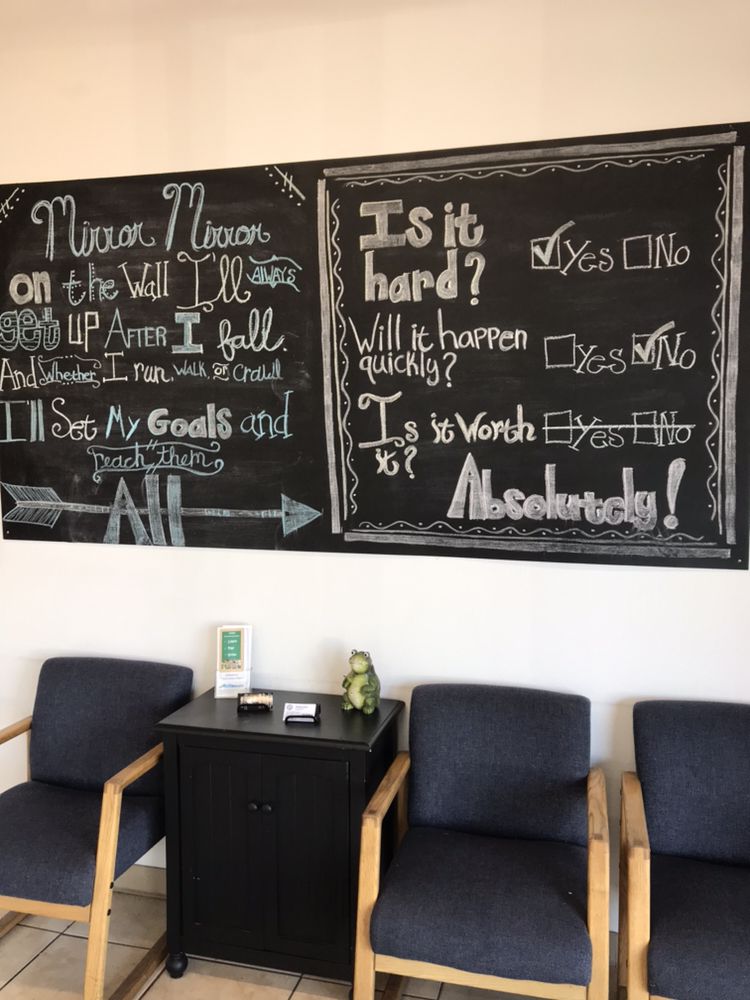 Mirror Mirror
on the Wall I'll ALWAYS
get UP AFTER I fall.
And Whether I run, WALK, OR Crawl
I'll Set My Goals and
Reach "them"
All
Is it
hard?
Yes No
Will it happen
quickly?
Yes No
Is it Worth
it?
Yes No
Absolutely!